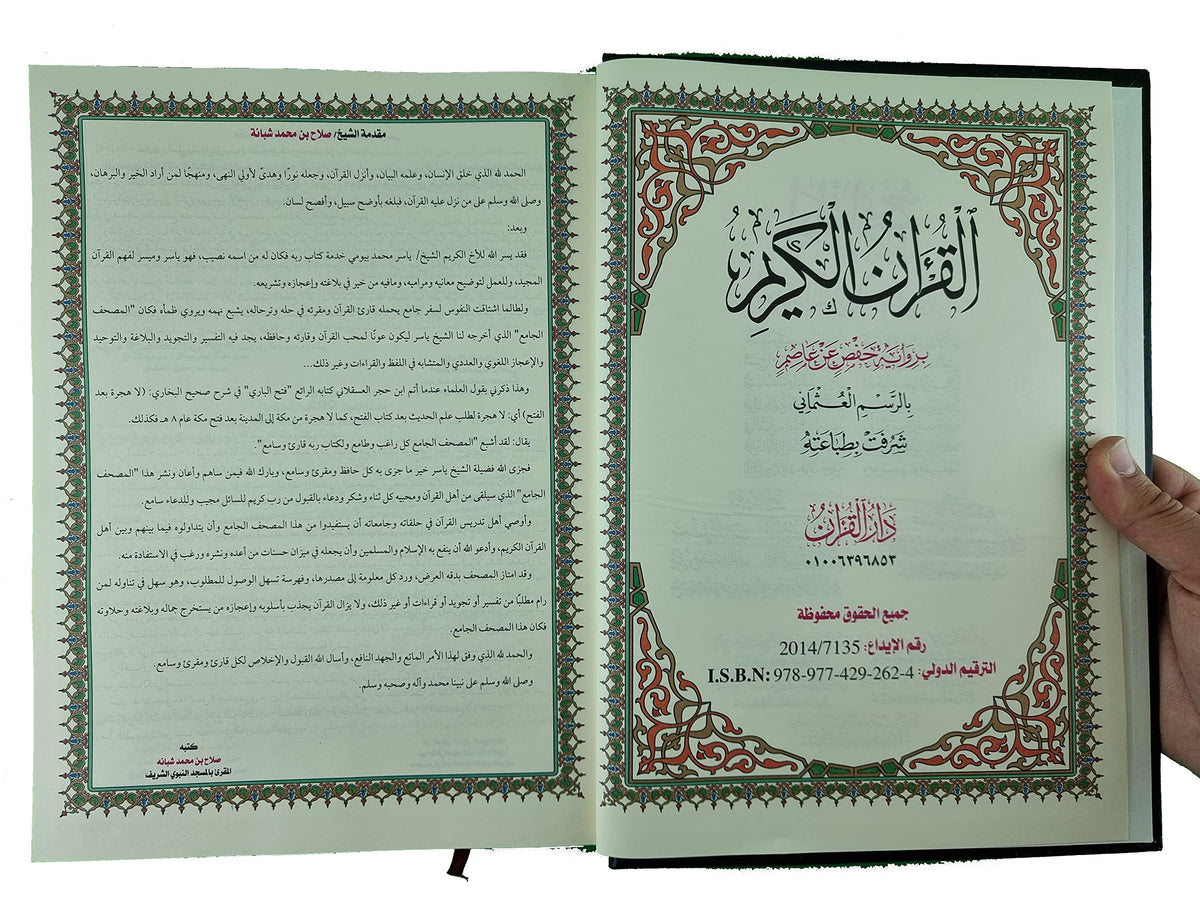 القرءان الكريم
برواية حفص عن عاصم
بالرسم العثماني
شرفت بطباعته
دار القرءان
٠١٠٠٦٣٩٦٨٥٣
جميع الحقوق محفوظة
رقم الإيداع: 2014/7135
الترقيم الدولي: I.S.B.N: 978-977-429-262-4
مقدمة الشيخ/ صلاح بن محمد شبانة
الحمد لله الذي خلق الإنسان، وعلمه البيان، وأنزل القرآن، وجعله نورًا وهدىً لأولي النهى، ومنهجًا لمن أراد الخير والبرهان،
وصلى الله وسلم على من نزل عليه القرآن، فبلغه بأوضح سبيل، وأفصح لسان.
وبعد:
فقد يسر الله للأخ الكريم الشيخ/ ياسر محمد بيومي خدمة كتاب ربه فكان له من اسمه نصيب، فهو ياسر وميسر لفهم القرآن
المجيد، وللعمل لتوضيح معانيه ومراميه، ومافيه من خير في بلاغته وإعجازه وتشريعه.
ولطالما اشتاقت النفوس لسفر جامع يحمله قارئ القرآن ومقرئه في حله وترحاله، يشبع نهمه ويروي ظمأه فكان "المصحف
الجامع" الذي أخرجه لنا الشيخ ياسر ليكون عونًا لمحب القرآن وقارئه وحافظه، يجد فيه التفسير والتجويد والبلاغة والتوحيد
والإعجاز اللغوي والعددي والمتشابه في اللفظ والقراءات وغير ذلك...
وهذا ذكرني بقول العلماء عندما أتم ابن حجر العسقلاني كتابه الرائع "فتح الباري" في شرح صحيح البخاري: (لا هجرة بعد
الفتح) أي: لا هجرة لطلب علم الحديث بعد كتاب الفتح، كما لا هجرة من مكة إلى المدينة بعد فتح مكة عام ٨ هـ فكذلك.
يقال: لقد أشبع "المصحف الجامع كل راغب وطامع ولكتاب ربه قارئ وسامع".
فجزى الله فضيلة الشيخ ياسر خير ما جزى به كل حافظ ومقرئ وسامع، وبارك الله فيمن ساهم وأعان ونشر هذا "المصحف
الجامع" الذي سيلقى من أهل القرآن ومحبيه كل ثناء وشكر ودعاء بالقبول من رب كريم للسائل مجيب وللدعاء سامع.
وأوصي أهل تدريس القرآن في حلقاته وجامعاته أن يستفيدوا من هذا المصحف الجامع وأن يتداولوه فيما بينهم وبين أهل
القرآن الكريم، وأدعو الله أن ينفع به الإسلام والمسلمين وأن يجعله في ميزان حسنات من أعده ونشره ورغب في الاستفادة منه.
وقد امتاز المصحف بدقه العرض، ورد كل معلومة إلى مصدرها، وفهرسة تسهل الوصول للمطلوب، وهو سهل في تناوله لمن
رام مطلبًا من تفسير أو تجويد أو قراءات أو غير ذلك، ولا يزال القرآن يجذب بأسلوبه وإعجازه من يستخرج جماله وبلاغته وحلاوته
فكان هذا المصحف الجامع.
والحمد لله الذي وفق لهذا الأمر الماتع والجهد النافع، وأسال الله القبول والإخلاص لكل قارئ ومقرئ وسامع.
وصلى الله وسلم على نبينا محمد وآله وصحبه وسلم.
كتبه
صلاح بن محمد شبانه
المقرئ بالمسجد النبوي الشريف